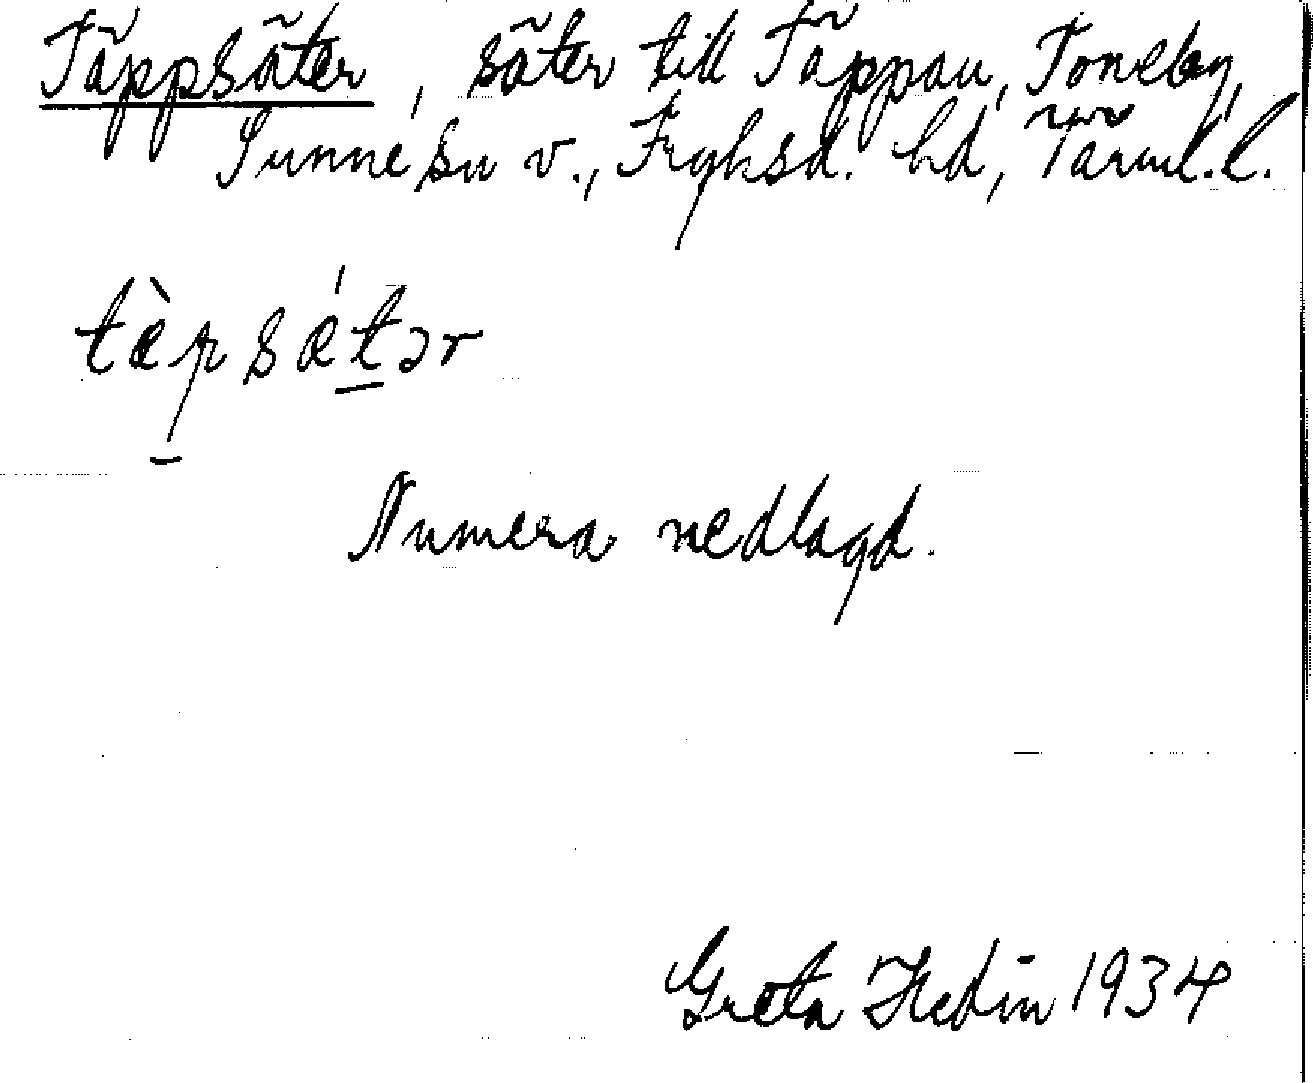 Täppsäter, säter till Täppan, Toneby,
Sunne sn v., Fryksd. hd, Värml. l.
tæ̀psǽtər
Numera nedlagd.
Greta Hedin 1934